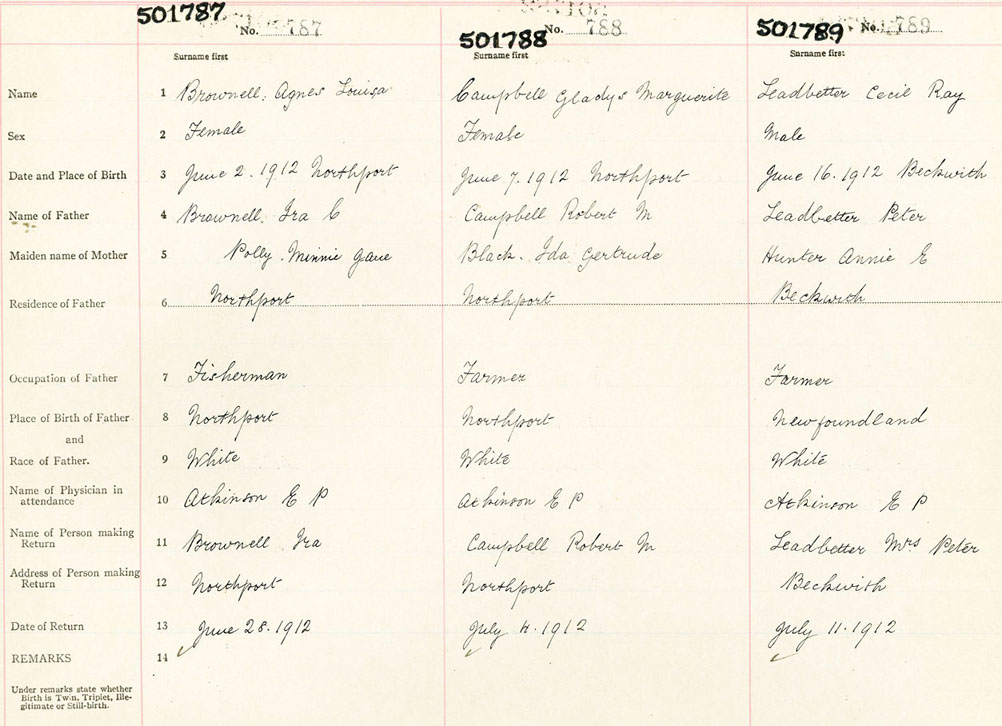 501787 No. 787 501788 No. 788 501789 No. 789
Surname first Surname first Surname first
Name 1 Brownell. Agnes Louisa Campbell Gladys Marguerite Leadbetter Cecil Ray
Sex 2 Female Female Male
Date and Place of Birth 3 June 2. 1912 Northport June 7. 1912 Northport June 16. 1912 Beckwith
Name of Father 4 Brownell. Ira C Campbell Robert M Leadbetter Peter
Maiden name of Mother 5 Polly. Minnie Black. Ida Gertrude Hunter Annie E
Residence of Father 6 Northport Northport Beckwith
Occupation of Father 7 Fisherman Farmer Farmer
Place of Birth of Father 8 Northport Northport Newfoundland
and
Race of Father. 9 White White White
Name of Physician in
attendance 10 Atkinson E P Atkinson E P Atkinson E P
Name of Person making
Return 11 Brownell Ira Campbell Robert M Leadbetter Mrs Peter
Address of Person making
Return 12 Northport Northport Beckwith
Date of Return 13 June 28. 1912 July 4. 1912 July 11. 1912
REMARKS 14
Under remarks state whether
Birth is Twin, Triplet, Ille-
gitimate or Still-birth.